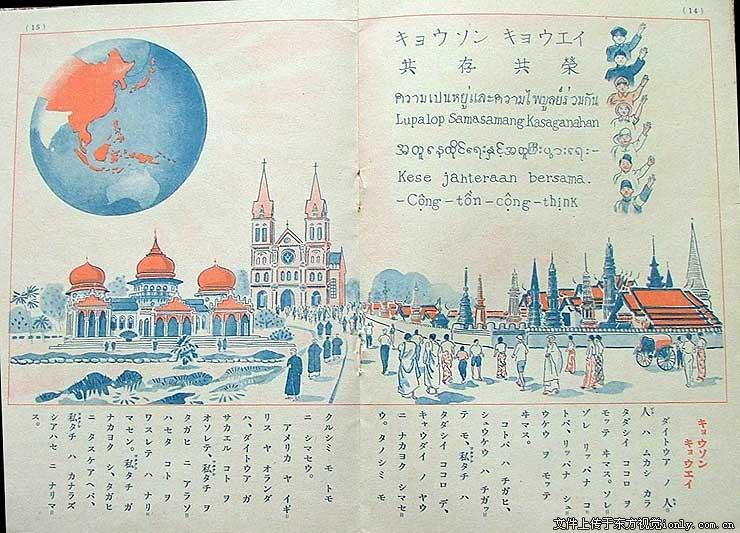 (14)
キョウソン キョウエイ
共存共榮
ความเปนหยู่และความไพบูลย์ร่วมกัน
Lupalop Samasamang Kasaganahan
အတူနေထိုင်ရေးနှင့်အတူကြီးပွားရေး-
Kese jahteraan bersama.
-Cộng-tồn-cộng-thịnk
キョウソン
キョウエイ
ダイトウア ノ 人
人 ハ ムカシ カラ
タダシイ ココロ ヲ
モッテ ヰマス。ソレ
ゾレ リッパナ コ
トバ、リッパナ シュ
ウケウ ヲ モッテ
ヰマス。
コトバ ハ チガヒ、
シュウケウ ハ チガッ
テ モ、私タチ ハ
タダシイ ココロ デ、
キャウダイ ノ ヤウ
ニ ナカヨク シマセ
ウ。タノシミ モ
(15)
クルシミ モ トモ
ニ シマセウ。
アメリカ ヤ イギ
リス ヤ オランダ
ハ、ダイトウア ガ
サカエル コト ヲ
オソレテ、私タチ ヲ
タガヒ ニ アラソ
ハセタ コト ヲ
ワスレテ ハ ナリ
マセン。私タチ ガ
ナカヨク シ、タガヒ
ニ タスケアヘバ、
私タチ ハ カナラズ
シアハセ ニ ナリマ
ス。
文件上传于东方视觉ionly.com.cn